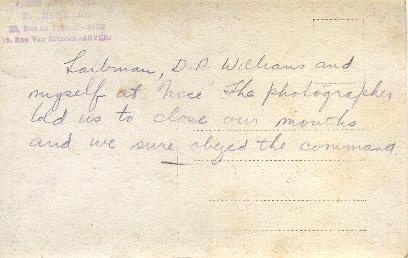 33, Rue de France - NICE
Rue Van Ertborn - ANVERS
Laibman, D.P. Williams and
myself at "Nice" The photographer
told us to close our mouths
and we sure obeyed the command.